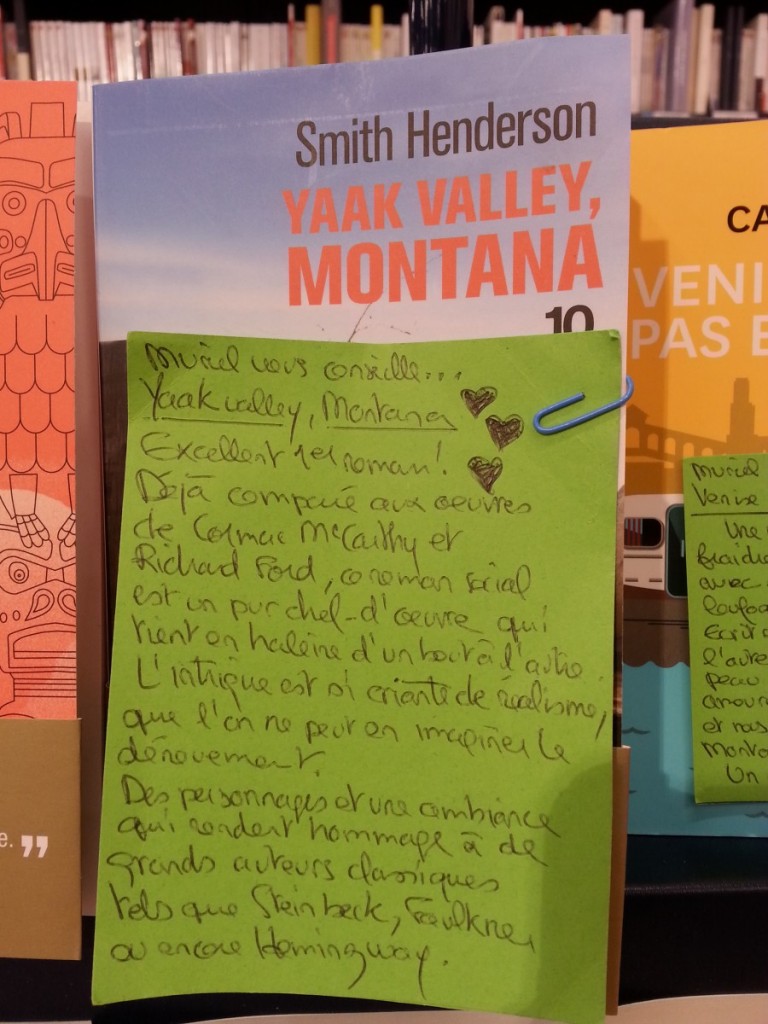 Smith Henderson
YAAK VALLEY,
MONTANA
10
Muriel vous conseille...
Yaak valley, Montana
Excellent 1er roman!
Déjà comparé aux oeuvres
de Cormac McCarthy et
Richard Ford, ce roman social
est un pur chef-d'oeuvre qui
tient en haleine d'un bout à l'autre.
L'intrigue est si criante de réalisme,
que l'on ne peut en imaginer le
dénouement.
Des personnages et une ambiance
qui rendent hommage à de
grands auteurs classiques
tels que Steinbeck, Faulkner
ou encore Hemingway.
e. ”
CA
VENI
PAS E
Muriel
Venise
Une
fraîche
avec
Ecrit
l'autre
peau
amour
et nos
Un